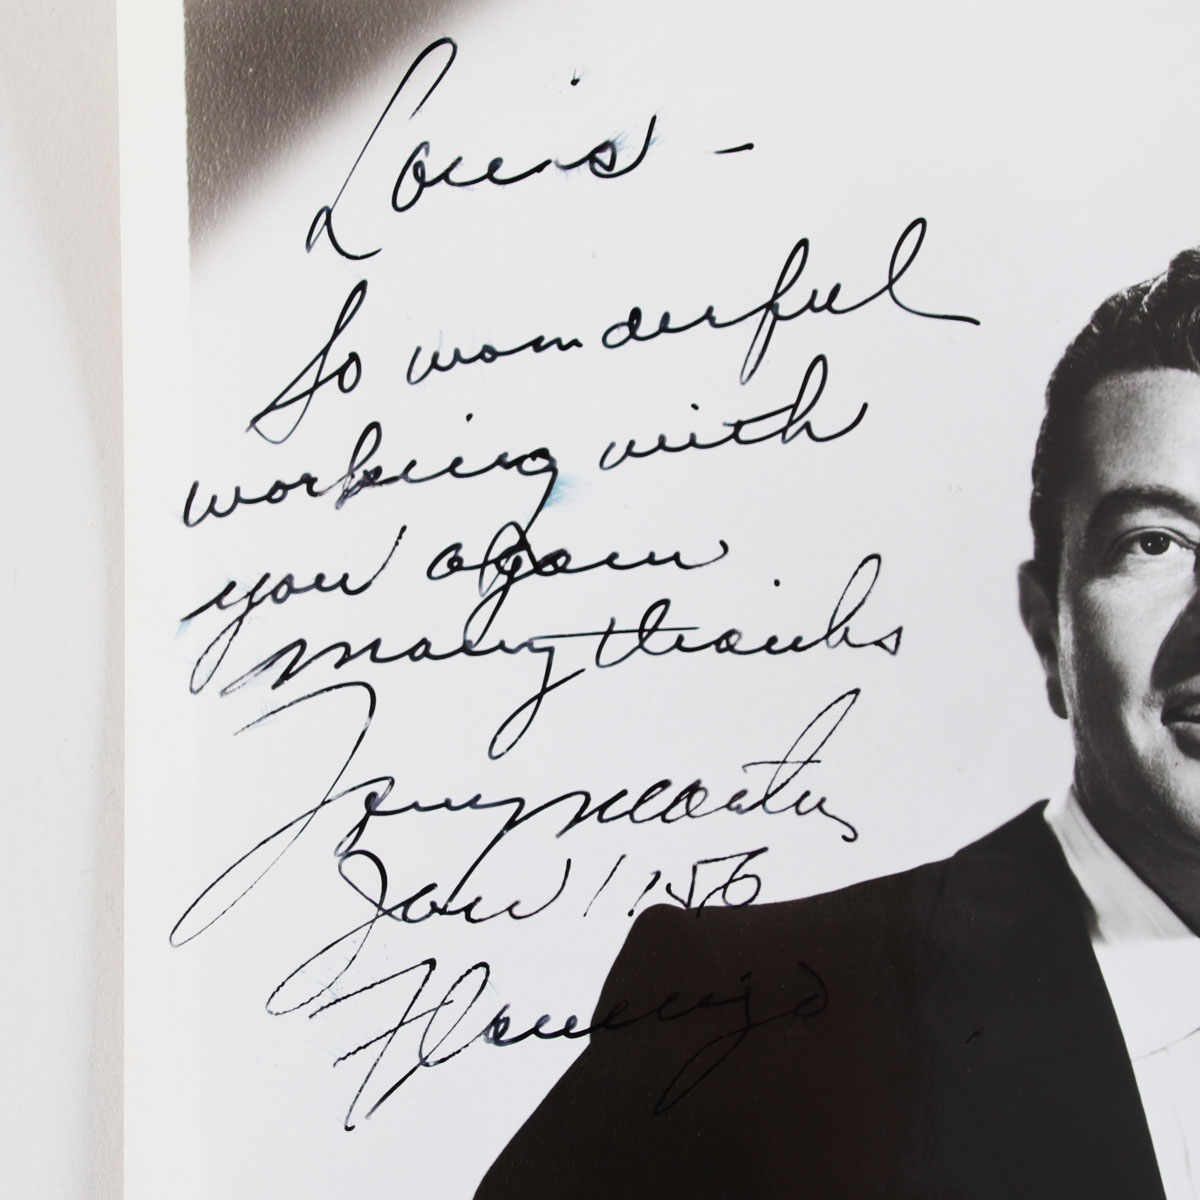 Louis –
So wonderful
working with
you again
many thanks
Tony Martin
Jan 1. '56
Flamingo